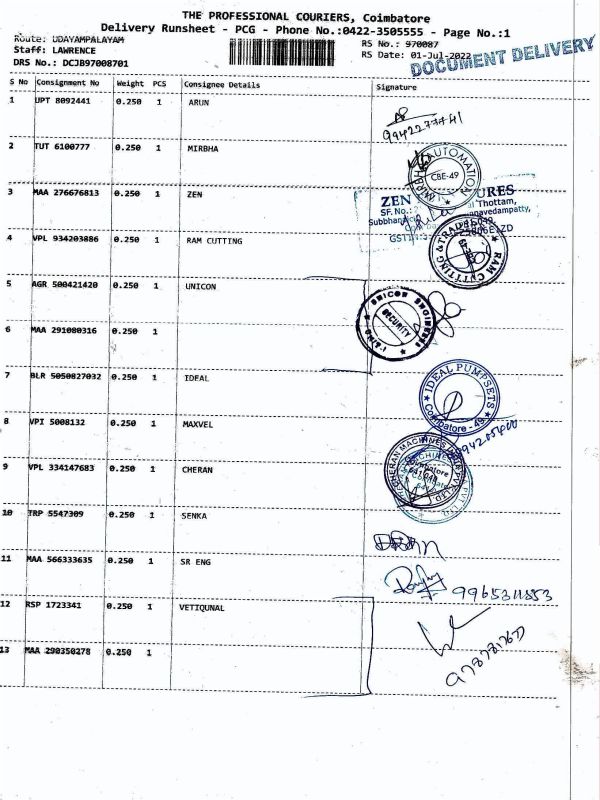 THE PROFESSIONAL COURIERS, Coimbatore
Delivery Runsheet - PCG - Phone No.:0422-3505555 - Page No.:1
Route: UDAYAMPALAYAM
Staff: LAWRENCE
DRS No.: DCJB97008701
RS No.: 970087
RS Date: 01-Jul-2022
DOCUMENT DELIVERY
S No Consignment No Weight PCS Consignee Details Signature
1 UPT 8092441 0.250 1 ARUN
2 TUT 6100777 0.250 1 MIRBHA
MIRBHA AUTOMATION
CBE-49
3 MAA 276676813 0.250 1 ZEN
ZEN URES
SF. No.: Thottam,
4 VPL 934203886 0.250 1 RAM CUTTING
RAM CUTTING & TRADERS
5 AGR 500421420 0.250 1 UNICON
UNICON ENGINEERS
SECURITY
6 MAA 291080316 0.250 1
7 BLR 5050827032 0.250 1 IDEAL
IDEAL PUMPSETS
Coimbatore - 49
8 VPI 5008132 0.250 1 MAXVEL
9 VPL 334147683 0.250 1 CHERAN
CHERAN MACHINES
Coimbatore
10 TRP 5547309 0.250 1 SENKA
11 MAA 566333635 0.250 1 SR ENG
12 RSP 1723341 0.250 1 VETIQUNAL
13 MAA 290350278 0.250 1